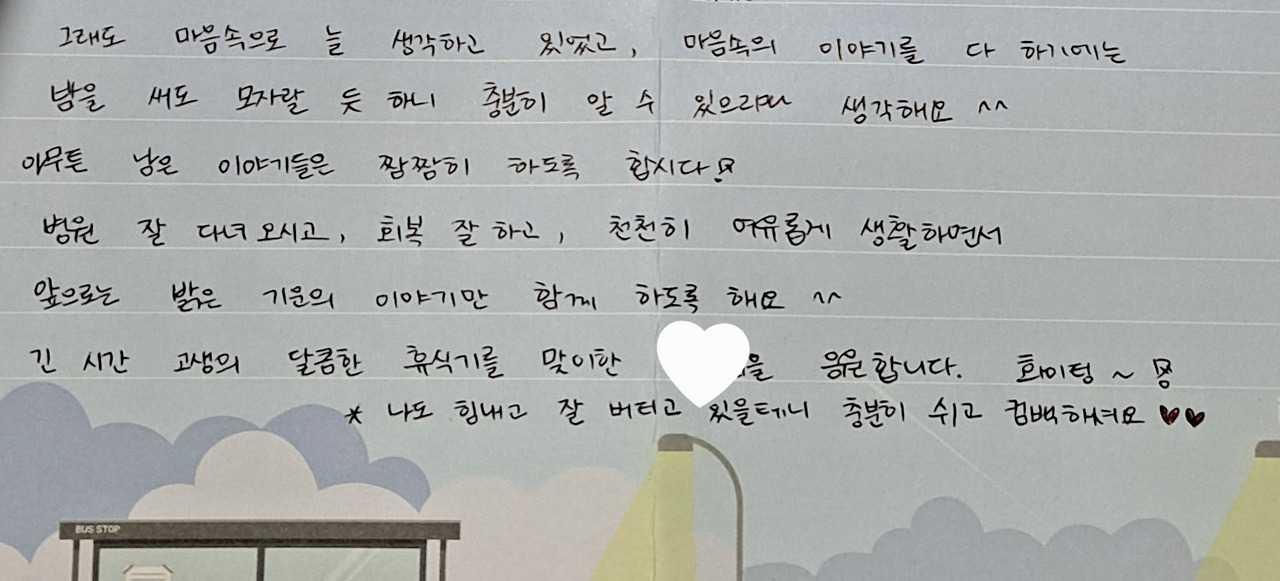 그래도 마음속으로 늘 생각하고 있었고, 마음속의 이야기를 다 하기에는
밤을 써도 모자랄 듯 하니 충분히 알 수 있으리라 생각해요 ^^
아무튼 남은 이야기들은 짬짬히 하도록 합시다!
병원 잘 다녀오시고, 회복 잘 하고, 천천히 여유롭게 생활하면서
앞으로는 밝은 기운의 이야기만 함께 하도록 해요 ^^
긴 시간 고생의 달콤한 휴식기를 맞이한 을 응원합니다. 화이팅 ~
* 나도 힘내고 잘 버티고 있을테니 충분히 쉬고 컴백하셔요 ♥♥
BUS STOP